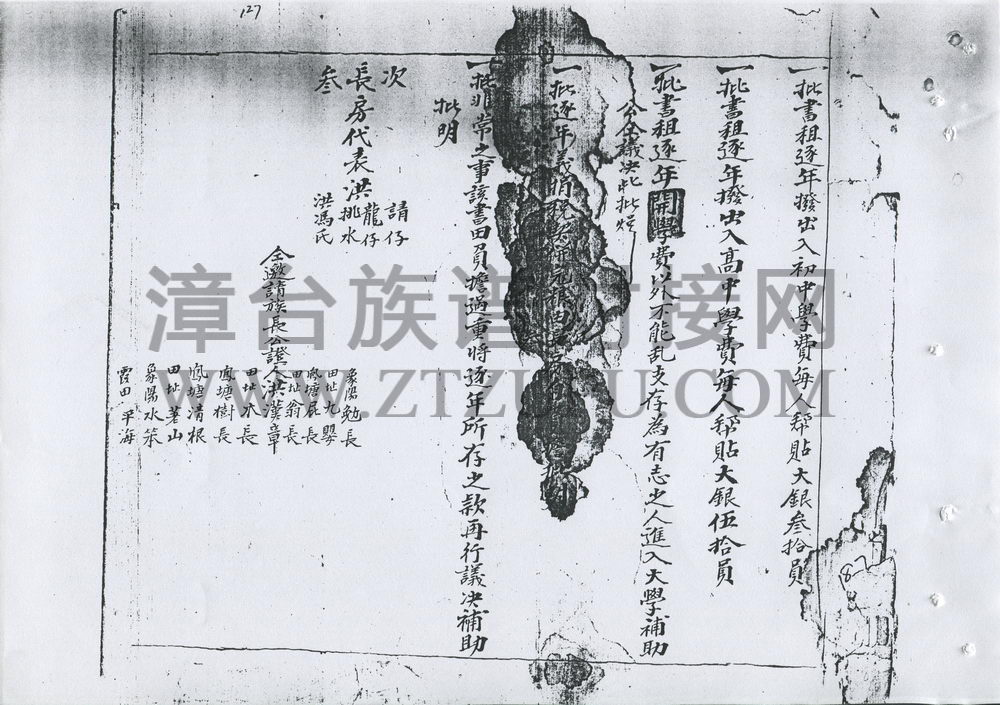 127
一批書租逐年撥出入初中學費每人幫貼大銀叁拾員
一批書租逐年撥出入高中學費每人幫貼大銀伍拾員
一批書租逐年開學費以外不能乱支存為有志之人進入大學補助
公仝議决此批炤
一批逐年義
一批非常之事該書田負擔過重將逐年所存之款再行議决補助
批明
次 請仔
長房代表洪 龍仔
叁 挑水
洪馮氏
仝邀請族長公證人洪漢章
象陽勉長
田址九嬰
鳳塘屁長
田址翁長
田址水長
鳳塘樹長
鳳塘清根
田址著山
象陽水笨
霞田平海
87
漳台族谱对接网
WWW.ZTZUPU.COM